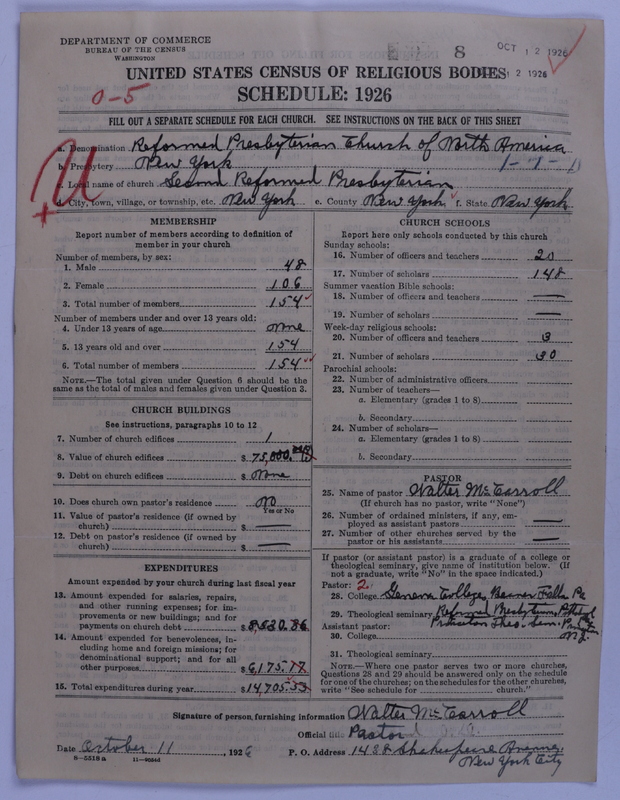 DEPARTMENT OF COMMERCE
BUREAU OF THE CENSUS
WASHINGTON
8
OCT 12 1926
UNITED STATES CENSUS OF RELIGIOUS BODIES
12 1926
0-5
SCHEDULE: 1926
FILL OUT A SEPARATE SCHEDULE FOR EACH CHURCH. SEE INSTRUCTIONS ON THE BACK OF THIS SHEET
a. Denomination Reformed Presbyterian Church of North America
b. Presbytery New York
c. Local name of church Second Reformed Presbyterian
d. City, town, village, or township, etc. New York e. County New York f. State New York
MEMBERSHIP
Report number of members according to definition of
member in your church
Number of members, by sex:
1. Male 48
2. Female 106
3. Total number of members 154
Number of members under and over 13 years old:
4. Under 13 years of age none
5. 13 years old and over 154
6. Total number of members 154
NOTE.—The total given under Question 6 should be the
same as the total of males and females given under Question 3.
CHURCH BUILDINGS
See instructions, paragraphs 10 to 12
7. Number of church edifices 1
8. Value of church edifices $ 75,000.
9. Debt on church edifices $ none
10. Does church own pastor's residence No
Yes or No
11. Value of pastor's residence (if owned by
church) $ —
12. Debt on pastor's residence (if owned by
church) $ —
EXPENDITURES
Amount expended by your church during last fiscal year
13. Amount expended for salaries, repairs,
and other running expenses; for im-
provements or new buildings; and for
payments on church debt $ 8,530.86
14. Amount expended for benevolences, in-
cluding home and foreign missions; for
denominational support; and for all
other purposes $ 6,175.77
15. Total expenditures during year $ 14,705.53
CHURCH SCHOOLS
Report here only schools conducted by this church
Sunday schools:
16. Number of officers and teachers 20
17. Number of scholars 148
Summer vacation Bible schools:
18. Number of officers and teachers —
19. Number of scholars —
Week-day religious schools:
20. Number of officers and teachers 3
21. Number of scholars 30
Parochial schools:
22. Number of administrative officers
23. Number of teachers—
a. Elementary (grades 1 to 8)
b. Secondary
24. Number of scholars—
a. Elementary (grades 1 to 8)
b. Secondary
PASTOR
25. Name of pastor Walter McCarroll
(If church has no pastor, write "None")
26. Number of ordained ministers, if any, em-
ployed as assistant pastors —
27. Number of other churches served by the
pastor or his assistants —
If pastor (or assistant pastor) is a graduate of a college or
theological seminary, give name of institution below. (If
not a graduate, write "No" in the space indicated.)
Pastor: 2
28. College Geneva College, Beaver Falls Pa
29. Theological seminary Reformed Presbyterian Pittsburgh Pa
Assistant pastor: Princeton Theo. Sem. Princeton
30. College N.J.
31. Theological seminary
NOTE.—Where one pastor serves two or more churches,
Questions 28 and 29 should be answered only on the schedule
for one of the churches; on the schedules for the other churches,
write "See schedule for church."
Signature of person furnishing information Walter McCarroll
Official title Pastor
Date October 11, 1926 P. O. Address 1438 Shakespeare Avenue,
8-5518a 11-9654d New York City